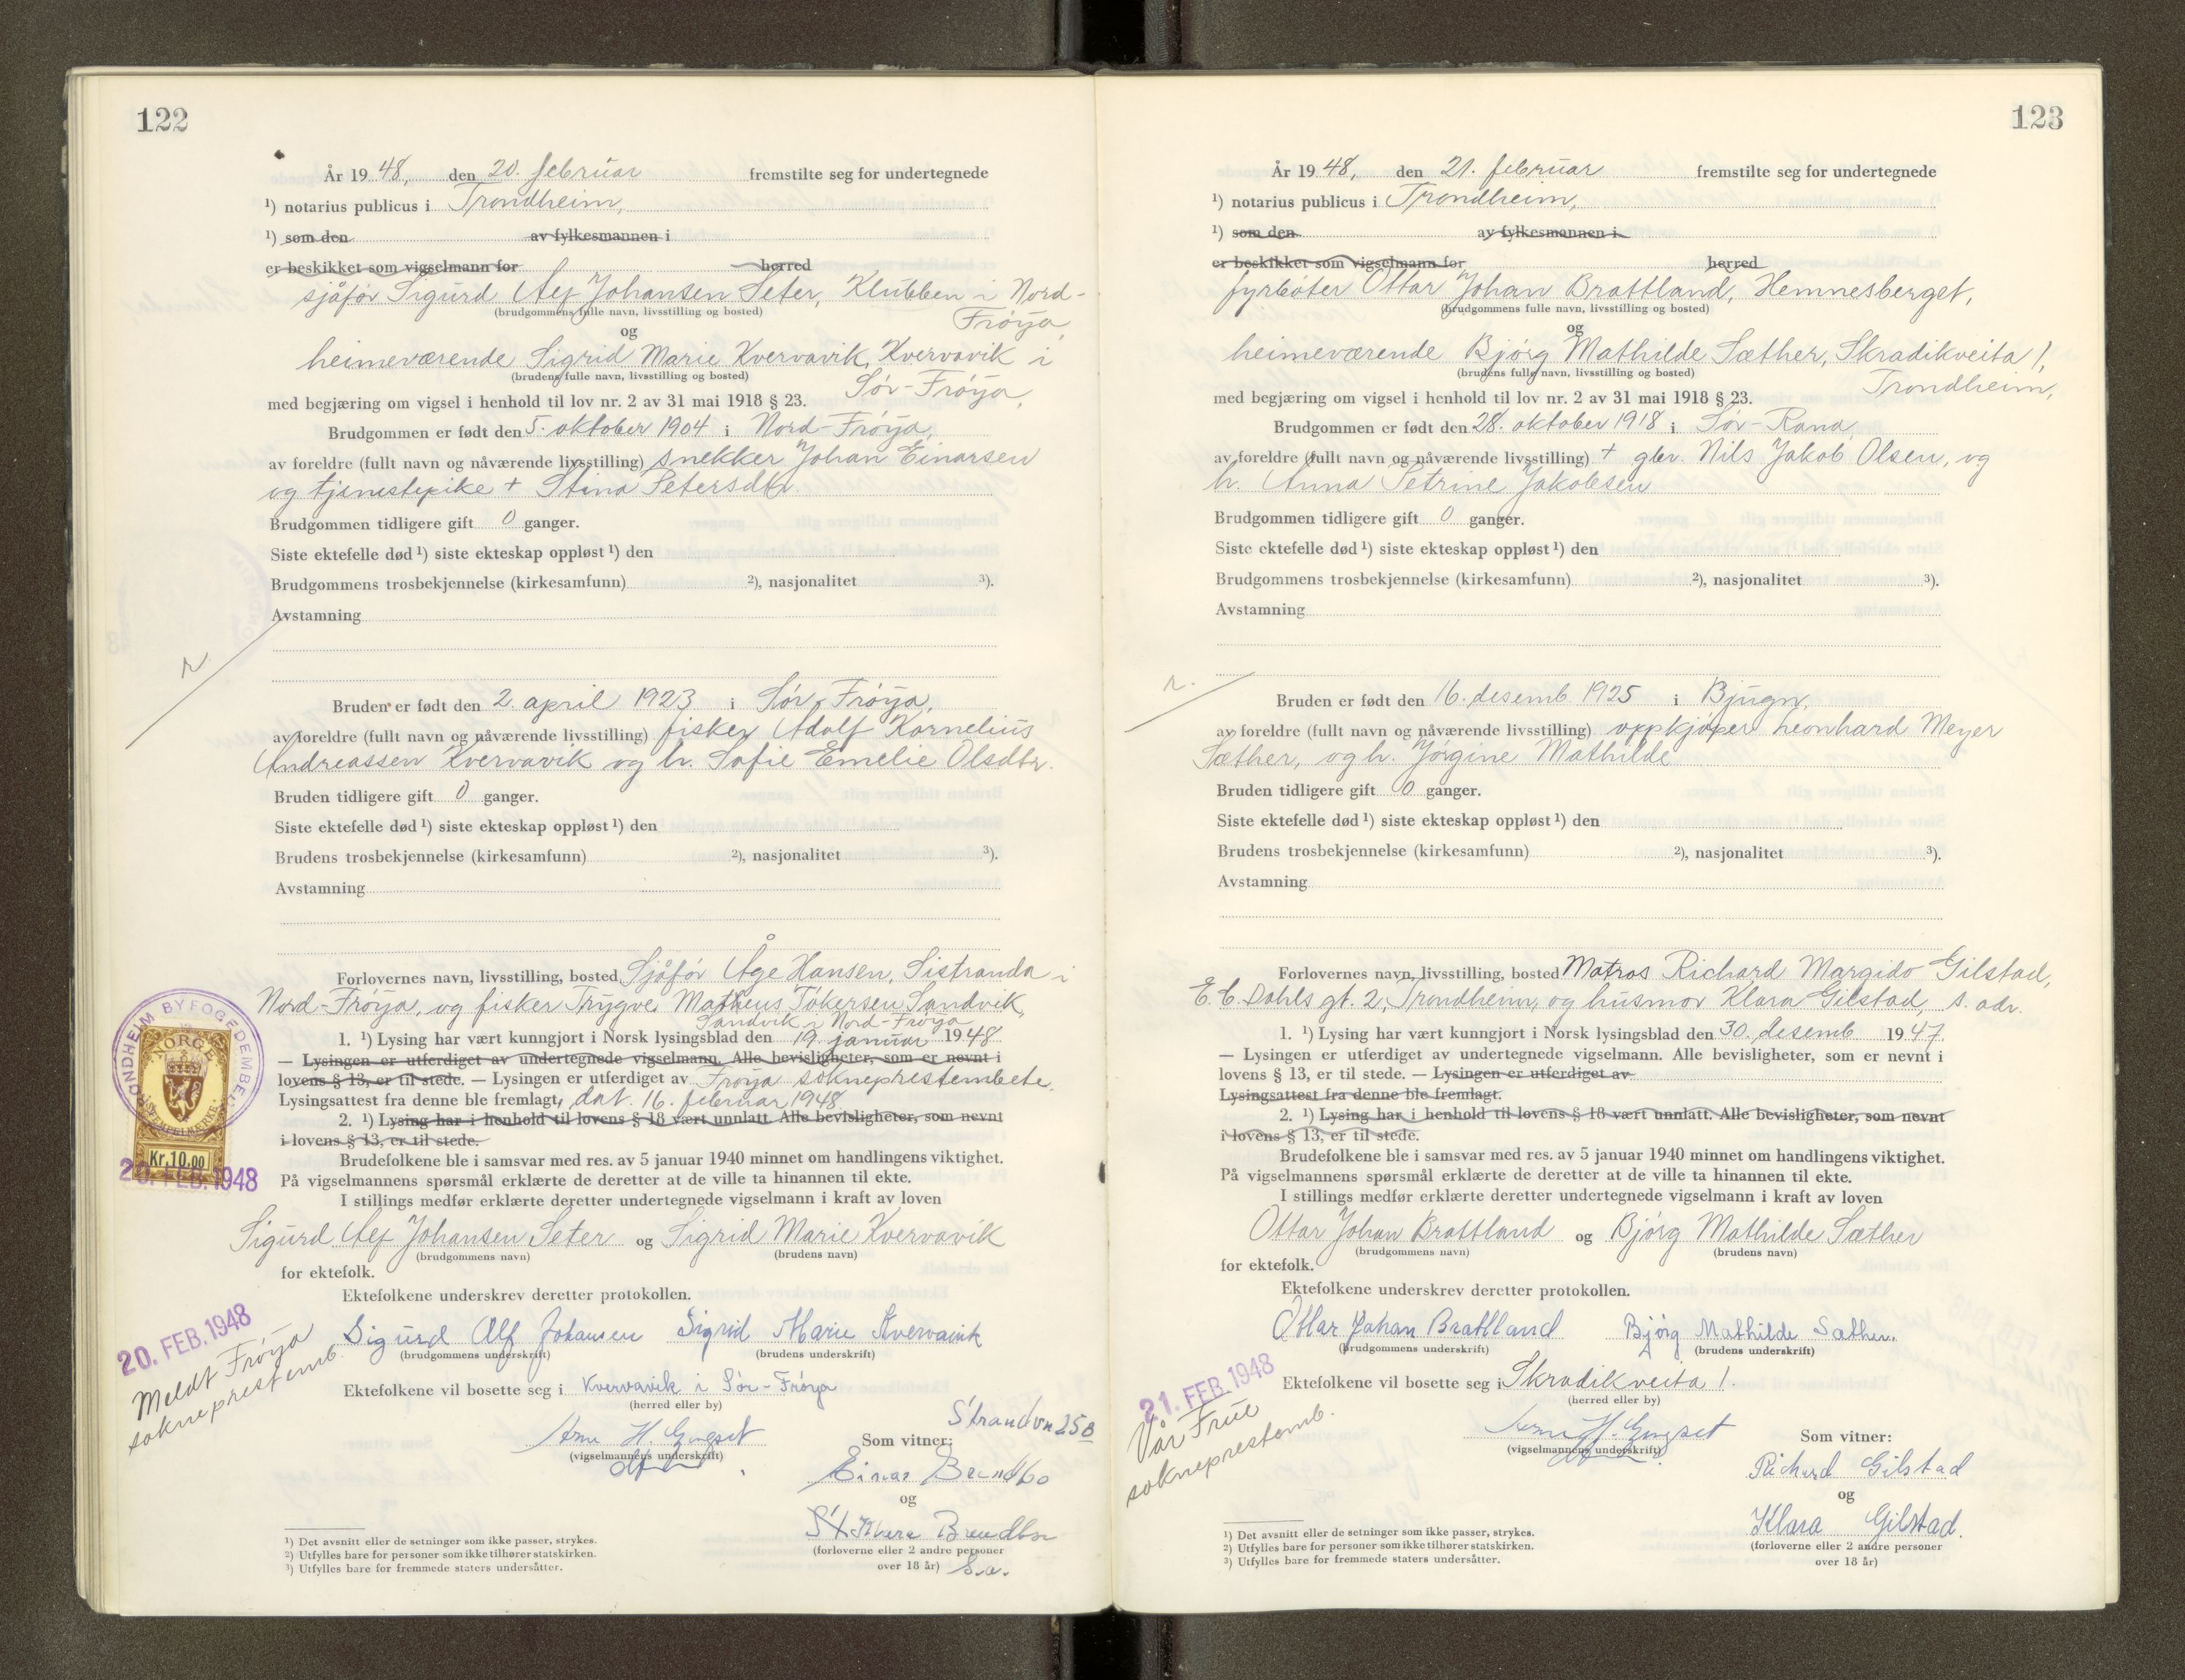 122
År 19 48, den 20. februar fremstilte seg for undertegnede
¹) notarius publicus i Trondheim,
¹) som den av fylkesmannen i
er beskikket som vigselmann for herred
sjåfør Sigurd Alf Johansen Seter, Klubben i Nord-
(brudgommens fulle navn, livsstilling og bosted)
Frøya,
og
heimeværende Sigrid Marie Kvervavik, Kvervavik i
(brudens fulle navn, livsstilling og bosted)
Sør-Frøya,
med begjæring om vigsel i henhold til lov nr. 2 av 31 mai 1918 § 23.
Brudgommen er født den 5. oktober 1904 i Nord-Frøya,
av foreldre (fullt navn og nåværende livsstilling) snekker Johan Einarsen
og tjenestepike + Stina Petersdtr.
Brudgommen tidligere gift 0 ganger.
Siste ektefelle død ¹) siste ekteskap oppløst ¹) den
Brudgommens trosbekjennelse (kirkesamfunn) ²), nasjonalitet ³).
Avstamning
Bruden er født den 2. april 1923 i Sør-Frøya,
av foreldre (fullt navn og nåværende livsstilling) fisker Adolf Kornelius
Andreassen Kvervavik og h. Sofie Emelie Olsdtr.
Bruden tidligere gift 0 ganger.
Siste ektefelle død ¹) siste ekteskap oppløst ¹) den
Brudens trosbekjennelse (kirkesamfunn) ²), nasjonalitet ³).
Avstamning
Forlovernes navn, livsstilling, bosted Sjåfør Åge Hansen, Sistranda i
Nord-Frøya, og fisker Trygve Matheus Tøkersen Sandvik,
Sandvik i Nord-Frøya
1. ¹) Lysing har vært kunngjort i Norsk lysingsblad den 19. januar 1948
— Lysingen er utferdiget av undertegnede vigselmann. Alle bevisligheter, som er nevnt i
lovens § 13, er til stede. — Lysingen er utferdiget av Frøya sokneprestembete.
Lysingsattest fra denne ble fremlagt, dat. 16. februar 1948
2. ¹) Lysing har i henhold til lovens § 18 vært unnlatt. Alle bevisligheter, som nevnt
i lovens § 13, er til stede.
Brudefolkene ble i samsvar med res. av 5 januar 1940 minnet om handlingens viktighet.
På vigselmannens spørsmål erklærte de deretter at de ville ta hinannen til ekte.
I stillings medfør erklærte deretter undertegnede vigselmann i kraft av loven
Sigurd Alf Johansen Seter og Sigrid Marie Kvervavik
(brudgommens navn) (brudens navn)
for ektefolk.
Ektefolkene underskrev deretter protokollen.
Sigurd Alf Johansen Sigrid Marie Kvervavik
(brudgommens underskrift) (brudens underskrift)
Ektefolkene vil bosette seg i Kvervavik i Sør-Frøya
(herred eller by)
Strandvn 25B
Som vitner:
(vigselmannens underskrift)
Einar Brendbo
og
Brendbo
(forloverne eller 2 andre personer
over 18 år) S.a.
¹) Det avsnitt eller de setninger som ikke passer, strykes.
²) Utfylles bare for personer som ikke tilhører statskirken.
³) Utfylles bare for fremmede staters undersåtter.
TRONDHEIM BYFOGEDEMBETE
NORGE
STEMPELMERKE
Kr. 10.00
20. FEB. 1948
20. FEB. 1948
Meldt Frøya
sokneprestemb.
123
År 19 48, den 21. februar fremstilte seg for undertegnede
¹) notarius publicus i Trondheim,
¹) som den av fylkesmannen i
er beskikket som vigselmann for herred
fyrbøter Ottar Johan Brattland, Hemnesberget,
(brudgommens fulle navn, livsstilling og bosted)
og
heimeværende Bjørg Mathilde Sæther, Skradikveita 1,
(brudens fulle navn, livsstilling og bosted)
Trondheim,
med begjæring om vigsel i henhold til lov nr. 2 av 31 mai 1918 § 23.
Brudgommen er født den 28. oktober 1918 i Sør-Rana,
av foreldre (fullt navn og nåværende livsstilling) + gbr. Nils Jakob Olsen, og
h. Anna Petrine Jakobsen
Brudgommen tidligere gift 0 ganger.
Siste ektefelle død ¹) siste ekteskap oppløst ¹) den
Brudgommens trosbekjennelse (kirkesamfunn) ²), nasjonalitet ³).
Avstamning
Bruden er født den 16. desemb. 1925 i Bjugn,
av foreldre (fullt navn og nåværende livsstilling) oppkjøper Leonhard Meyer
Sæther, og h. Jørgine Mathilde
Bruden tidligere gift 0 ganger.
Siste ektefelle død ¹) siste ekteskap oppløst ¹) den
Brudens trosbekjennelse (kirkesamfunn) ²), nasjonalitet ³).
Avstamning
Forlovernes navn, livsstilling, bosted Matros Richard Margido Gilstad,
E. C. Dahls gt. 2, Trondheim, og husmor Klara Gilstad, s. adr.
1. ¹) Lysing har vært kunngjort i Norsk lysingsblad den 30. desemb 1947.
— Lysingen er utferdiget av undertegnede vigselmann. Alle bevisligheter, som er nevnt i
lovens § 13, er til stede. — Lysingen er utferdiget av
Lysingsattest fra denne ble fremlagt.
2. ¹) Lysing har i henhold til lovens § 18 vært unnlatt. Alle bevisligheter, som nevnt
i lovens § 13, er til stede.
Brudefolkene ble i samsvar med res. av 5 januar 1940 minnet om handlingens viktighet.
På vigselmannens spørsmål erklærte de deretter at de ville ta hinannen til ekte.
I stillings medfør erklærte deretter undertegnede vigselmann i kraft av loven
Ottar Johan Brattland og Bjørg Mathilde Sæther
(brudgommens navn) (brudens navn)
for ektefolk.
Ektefolkene underskrev deretter protokollen.
Ottar Johan Brattland Bjørg Mathilde Sæther.
(brudgommens underskrift) (brudens underskrift)
Ektefolkene vil bosette seg i Skradikveita 1.
(herred eller by)
(vigselmannens underskrift)
Som vitner:
Richard Gilstad
og
Klara Gilstad.
(forloverne eller 2 andre personer
over 18 år)
¹) Det avsnitt eller de setninger som ikke passer, strykes.
²) Utfylles bare for personer som ikke tilhører statskirken.
³) Utfylles bare for fremmede staters undersåtter.
21. FEB. 1948
Vår Frue
sokneprestemb.